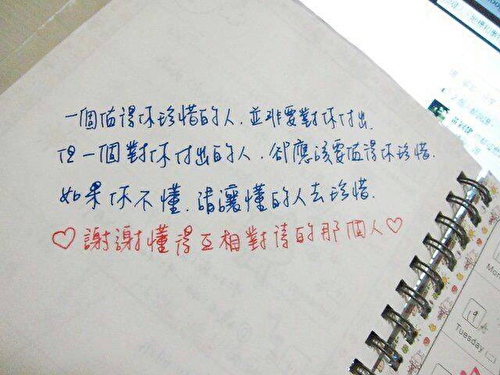 一個值得你珍惜的人.並非要對你付出.
但一個對你付出的人.卻應該要值得你珍惜.
如果你不懂.請讓懂的人去珍惜.
♡謝謝懂得互相對待的那個人♡
Tuesday